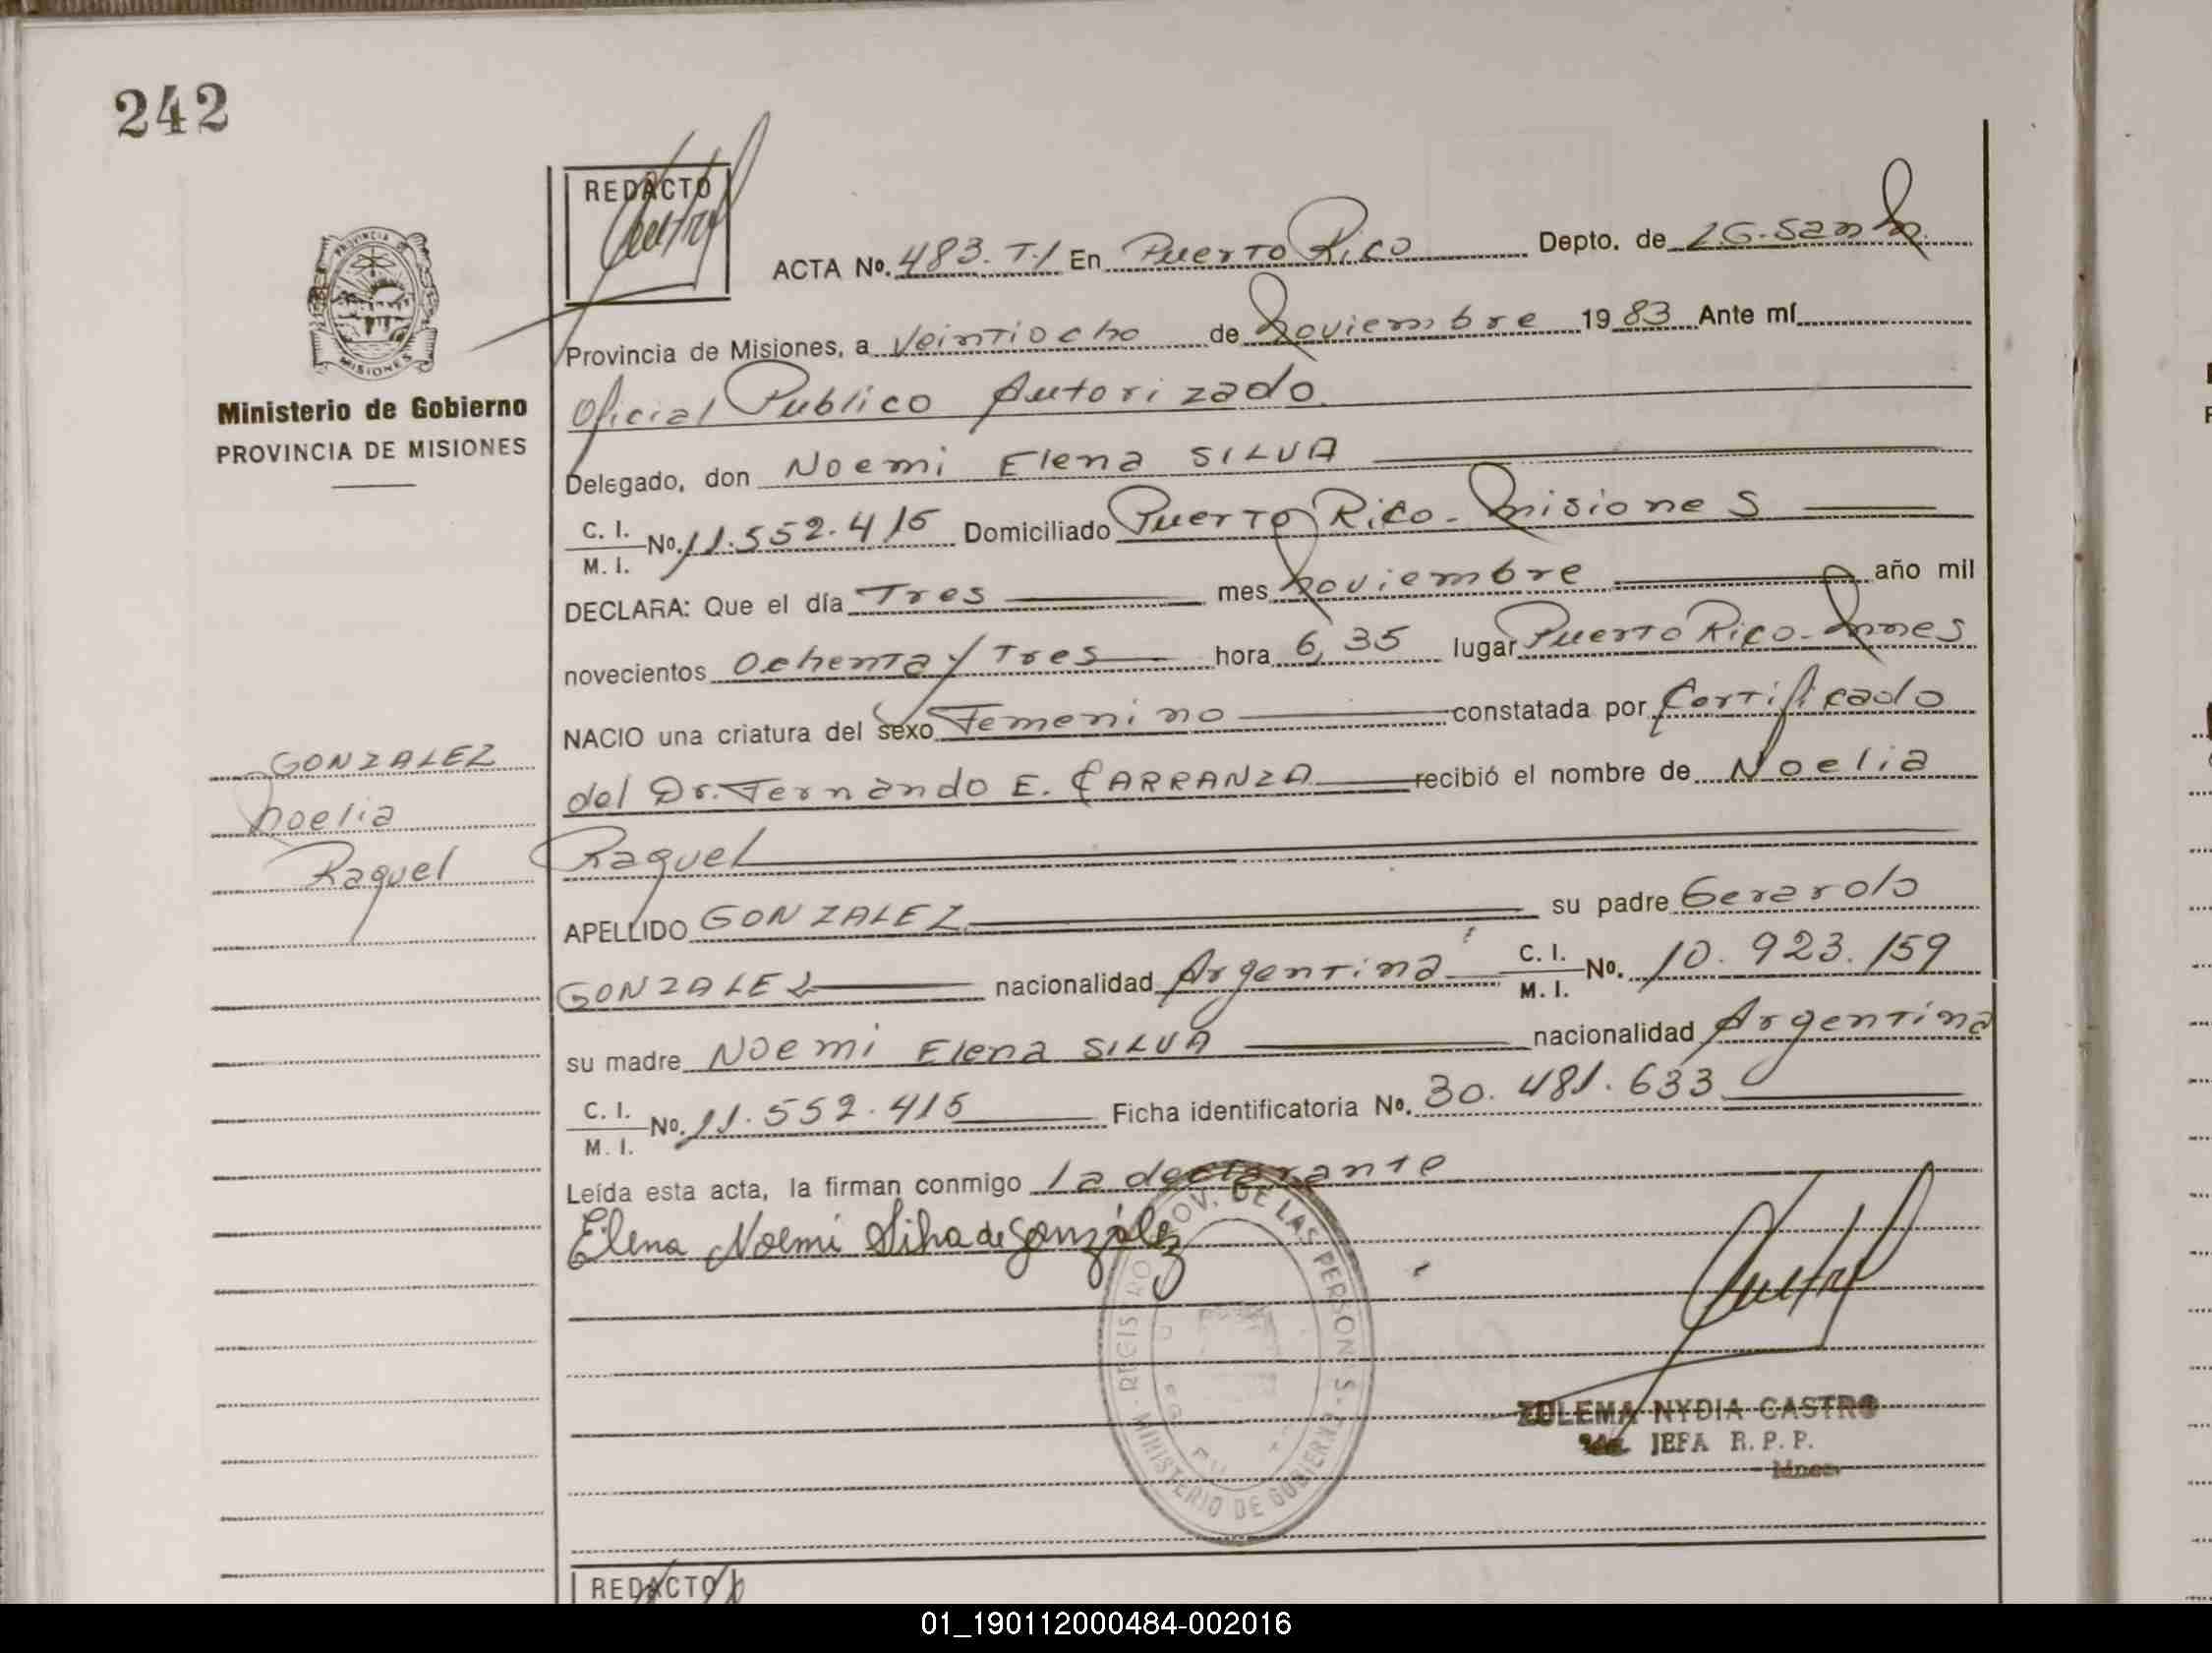 242
REDACTO
ACTA No. 483. T.I En Puerto Rico Depto. de L.G.San M.
PROVINCIA DE
MISIONES
Provincia de Misiones, a Veintiocho de Noviembre 1983 Ante mí
Ministerio de Gobierno
PROVINCIA DE MISIONES
Oficial Publico Autorizado.
Delegado, don Noemi Elena SILVA
C. I.
M. I. No. 11.552.415 Domiciliado Puerto Rico - Misiones
DECLARA: Que el día Tres mes Noviembre año mil
novecientos Ochenta y Tres hora 6,35 lugar Puerto Rico - Mnes
NACIO una criatura del sexo Femenino constatada por Certificado
GONZALEZ
Noelia
Raquel
del Dr. Fernando E. CARRANZA recibió el nombre de Noelia
Raquel
APELLIDO GONZALEZ su padre Gerardo
GONZALEZ nacionalidad Argentina C. I.
M. I. No. 10.923.159
su madre Noemi Elena SILVA nacionalidad Argentina
C. I.
M. I. No. 11.552.415 Ficha identificatoria No. 30.481.633
Leída esta acta, la firman conmigo la declarante
Elena Noemí Silva de González
DE LAS PERSONAS
MINISTERIO DE GOBIERNO
ZULEMA NYDIA CASTRO
JEFA R. P. P.
REDACTO
01_190112000484-002016